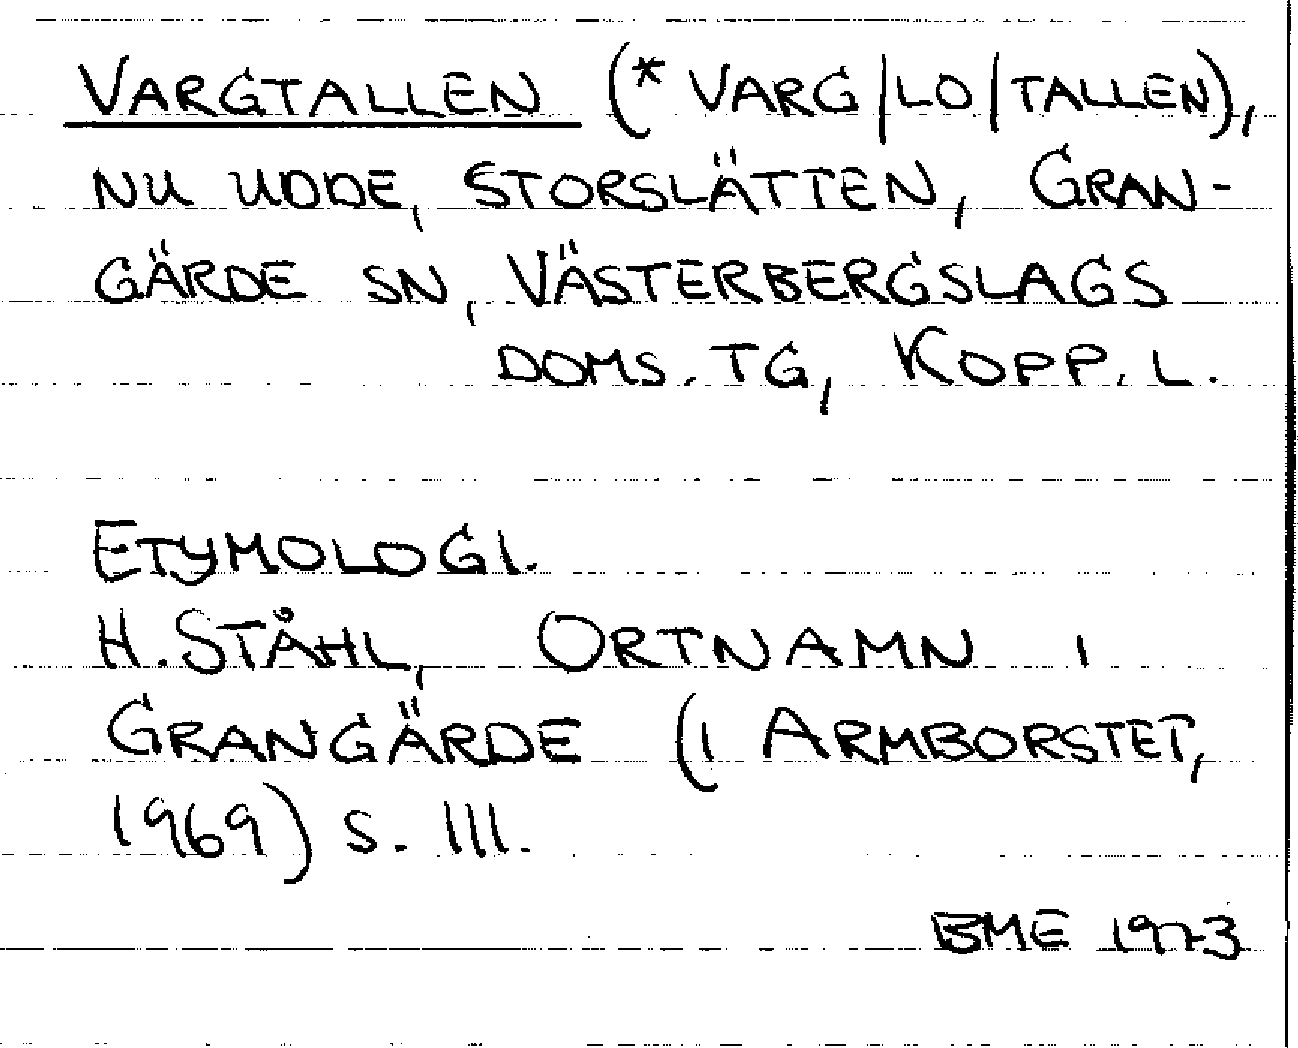 VARGTALLEN (* VARG|LO|TALLEN),
NU UDDE, STORSLÄTTEN, GRAN-
GÄRDE SN, VÄSTERBERGSLAGS
DOMS. TG, KOPP. L.
ETYMOLOGI.
H. STÅHL, ORTNAMN I
GRANGÄRDE (I ARMBORSTET,
1969) S. 111.
BME 1973